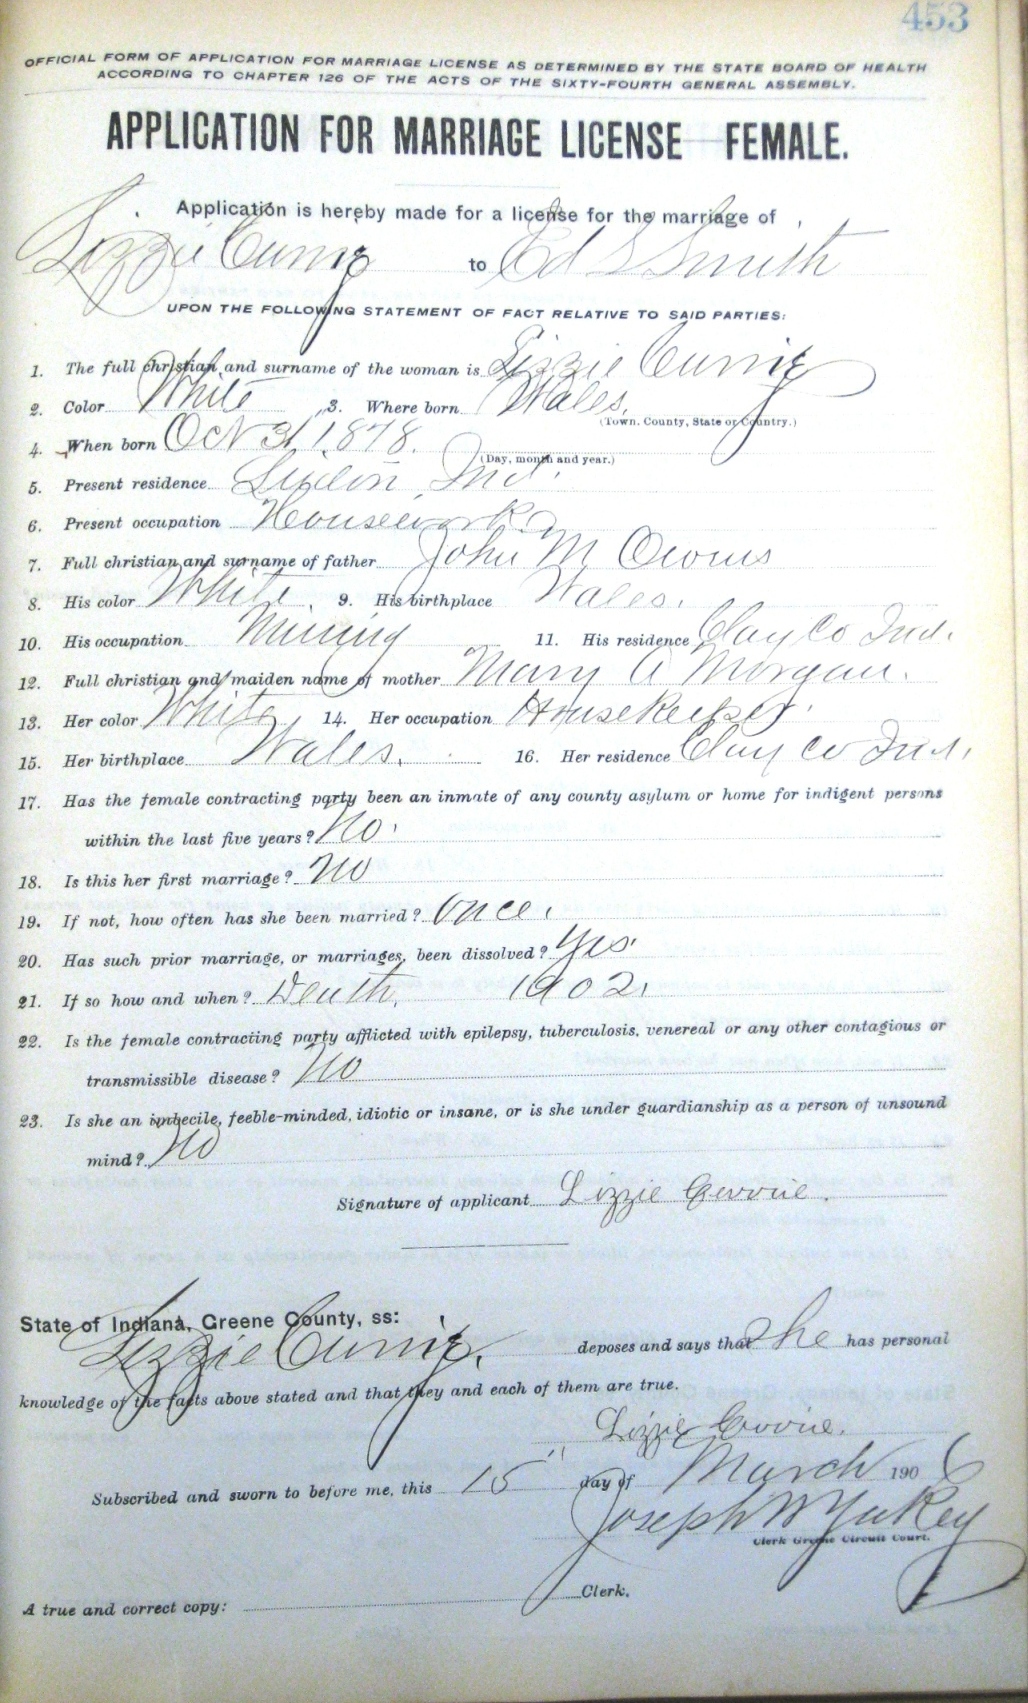 453
OFFICIAL FORM OF APPLICATION FOR MARRIAGE LICENSE AS DETERMINED BY THE STATE BOARD OF HEALTH
ACCORDING TO CHAPTER 126 OF THE ACTS OF THE SIXTY-FOURTH GENERAL ASSEMBLY.
APPLICATION FOR MARRIAGE LICENSE FEMALE.
Application is hereby made for a license for the marriage of
Lizzie to Ed S Smith
UPON THE FOLLOWING STATEMENT OF FACT RELATIVE TO SAID PARTIES:
1. The full christian and surname of the woman is Lizzie
2. Color White 3. Where born Wales.
(Town. County, State or Country.)
4. When born Oct 31, 1878.
(Day, month and year.)
5. Present residence Ind.
6. Present occupation Housework
7. Full christian and surname of father John M Owens
8. His color White. 9. His birthplace Wales.
10. His occupation Mining 11. His residence Clay Co Ind.
12. Full christian and maiden name of mother Mary A Morgan.
13. Her color White, 14. Her occupation Housekeeper.
15. Her birthplace Wales. 16. Her residence Clay Co Ind.
17. Has the female contracting party been an inmate of any county asylum or home for indigent persons
within the last five years? No.
18. Is this her first marriage? No
19. If not, how often has she been married? Once.
20. Has such prior marriage, or marriages, been dissolved? Yes.
21. If so how and when? Death, 1902.
22. Is the female contracting party afflicted with epilepsy, tuberculosis, venereal or any other contagious or
transmissible disease? No
23. Is she an imbecile, feeble-minded, idiotic or insane, or is she under guardianship as a person of unsound
mind? No
Signature of applicant Lizzie
State of Indiana, Greene County, ss:
Lizzie deposes and says that She has personal
knowledge of the facts above stated and that they and each of them are true.
Lizzie
Subscribed and sworn to before me, this 15" day of March 1906
Joseph W Yakey
Clerk Greene Circuit Court.
A true and correct copy: Clerk.